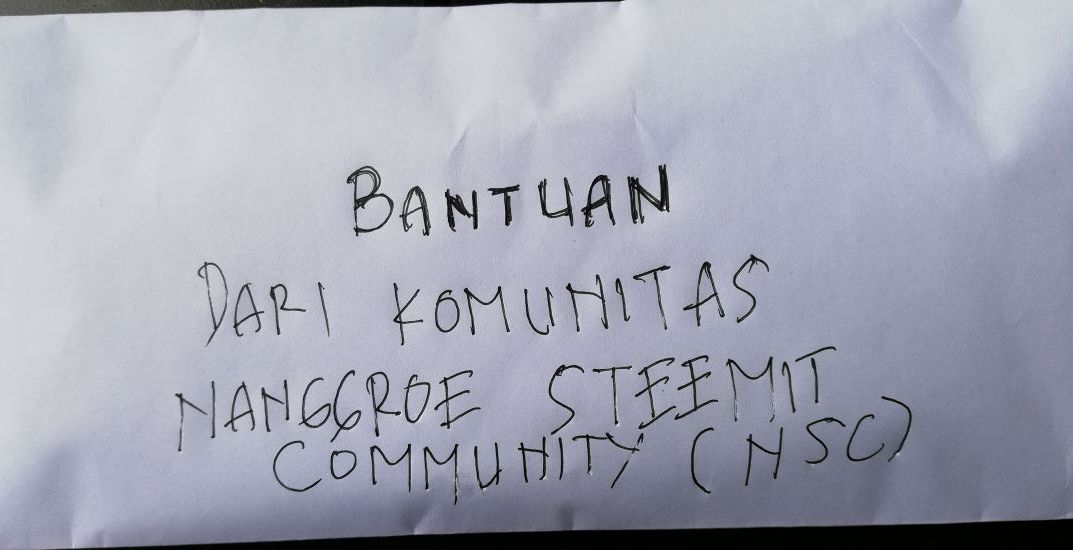 BANTUAN
DARI KOMUNITAS
NANGGROE STEEMIT
COMMUNITY (NSC)